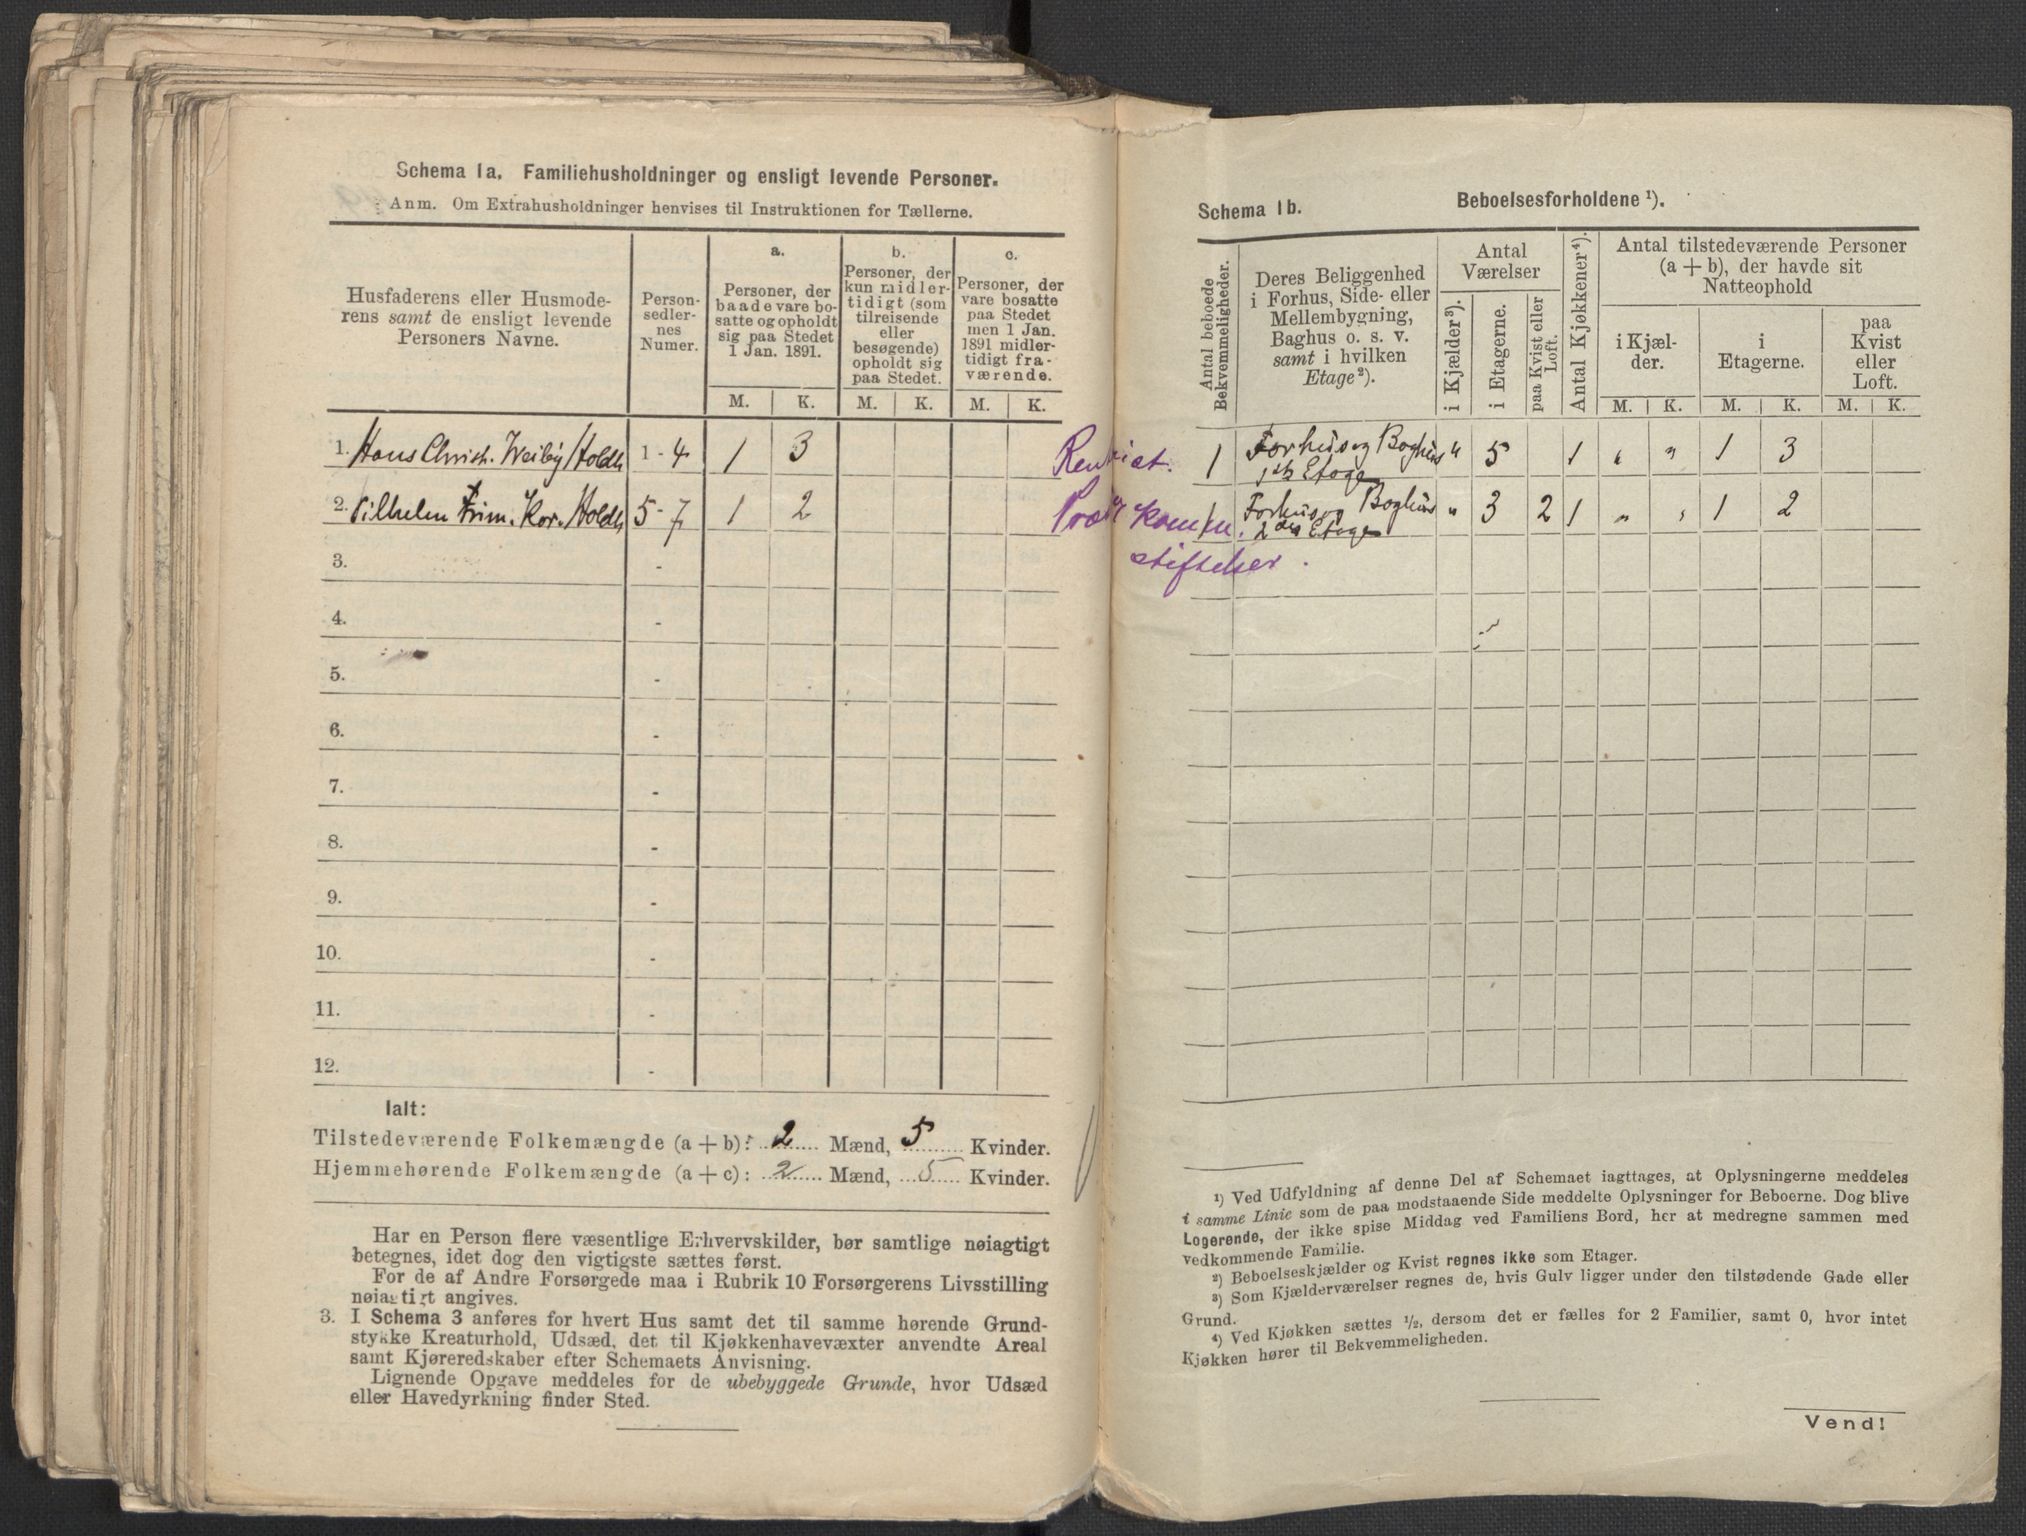 Schema 1a. Familiehusholdninger og ensligt levende Personer.
Anm. Om Extrahusholdninger henvises til Instruktionen for Tællerne.
Husfaderens eller Husmode-
rens samt de ensligt levende
Personers Navne.
Person-
sedler-
nes
Numer.
a.
Personer, der
baade vare bo-
satte og opholdt
sig paa Stedet
1 Jan. 1891.
b.
Personer, der
kun midler-
tidigt (som
tilreisende
eller
besøgende)
opholdt sig
paa Stedet.
c.
Personer, der
vare bosatte
paa Stedet
men 1 Jan.
1891 midler-
tidigt fra-
værende.
M. K. M. K. M. K.
1. Hans Christ. Weiby Holdh 1-4 1 3
2. Vilhelm Frim. Kor. Holdh 5-7 1 2
3. -
4. -
5. -
6. -
7. -
8. -
9. -
10. -
11. -
12. -
Ialt:
Tilstedeværende Folkemængde (a + b): 2 Mænd, 5 Kvinder.
Hjemmehørende Folkemængde (a + c): 2 Mænd, 5 Kvinder.
Har en Person flere væsentlige Erhvervskilder, bør samtlige nøiagtigt
betegnes, idet dog den vigtigste sættes først.
For de af Andre Forsørgede maa i Rubrik 10 Forsørgerens Livsstilling
nøiagtigt angives.
3. I Schema 3 anføres for hvert Hus samt det til samme hørende Grund-
stykke Kreaturhold, Udsæd, det til Kjøkkenhavevæxter anvendte Areal
samt Kjøreredskaber efter Schemaets Anvisning.
Lignende Opgave meddeles for de ubebyggede Grunde, hvor Udsæd
eller Havedyrkning finder Sted.
Schema 1b. Beboelsesforholdene ¹).
Antal beboede
Bekvemmeligheder.
Deres Beliggenhed
i Forhus, Side- eller
Mellembygning,
Baghus o. s. v.
samt i hvilken
Etage²).
Antal
Værelser
i Kjælder³).
i Etagerne.
paa Kvist eller
Loft.
Antal Kjøkkener⁴).
Antal tilstedeværende Personer
(a + b), der havde sit
Natteophold
i Kjæl-
der.
i
Etagerne.
paa
Kvist
eller
Loft.
M. K. M. K. M. K.
1 Forhus og Baghus " 5 1 " " 1 3
1ste Etage
1 Forhus og Baghus " 3 2 1 " " 1 2
2den Etage
stiftelser.
¹) Ved Udfyldning af denne Del af Schemaet iagttages, at Oplysningerne meddeles
i samme Linie som de paa modstaaende Side meddelte Oplysninger for Beboerne. Dog blive
Logerende, der ikke spise Middag ved Familiens Bord, her at medregne sammen med
vedkommende Familie.
²) Beboelseskjælder og Kvist regnes ikke som Etager.
³) Som Kjælderværelser regnes de, hvis Gulv ligger under den tilstødende Gade eller
Grund.
⁴) Ved Kjøkken sættes ½, dersom det er fælles for 2 Familier, samt 0, hvor intet
Kjøkken hører til Bekvemmeligheden.
Vend!